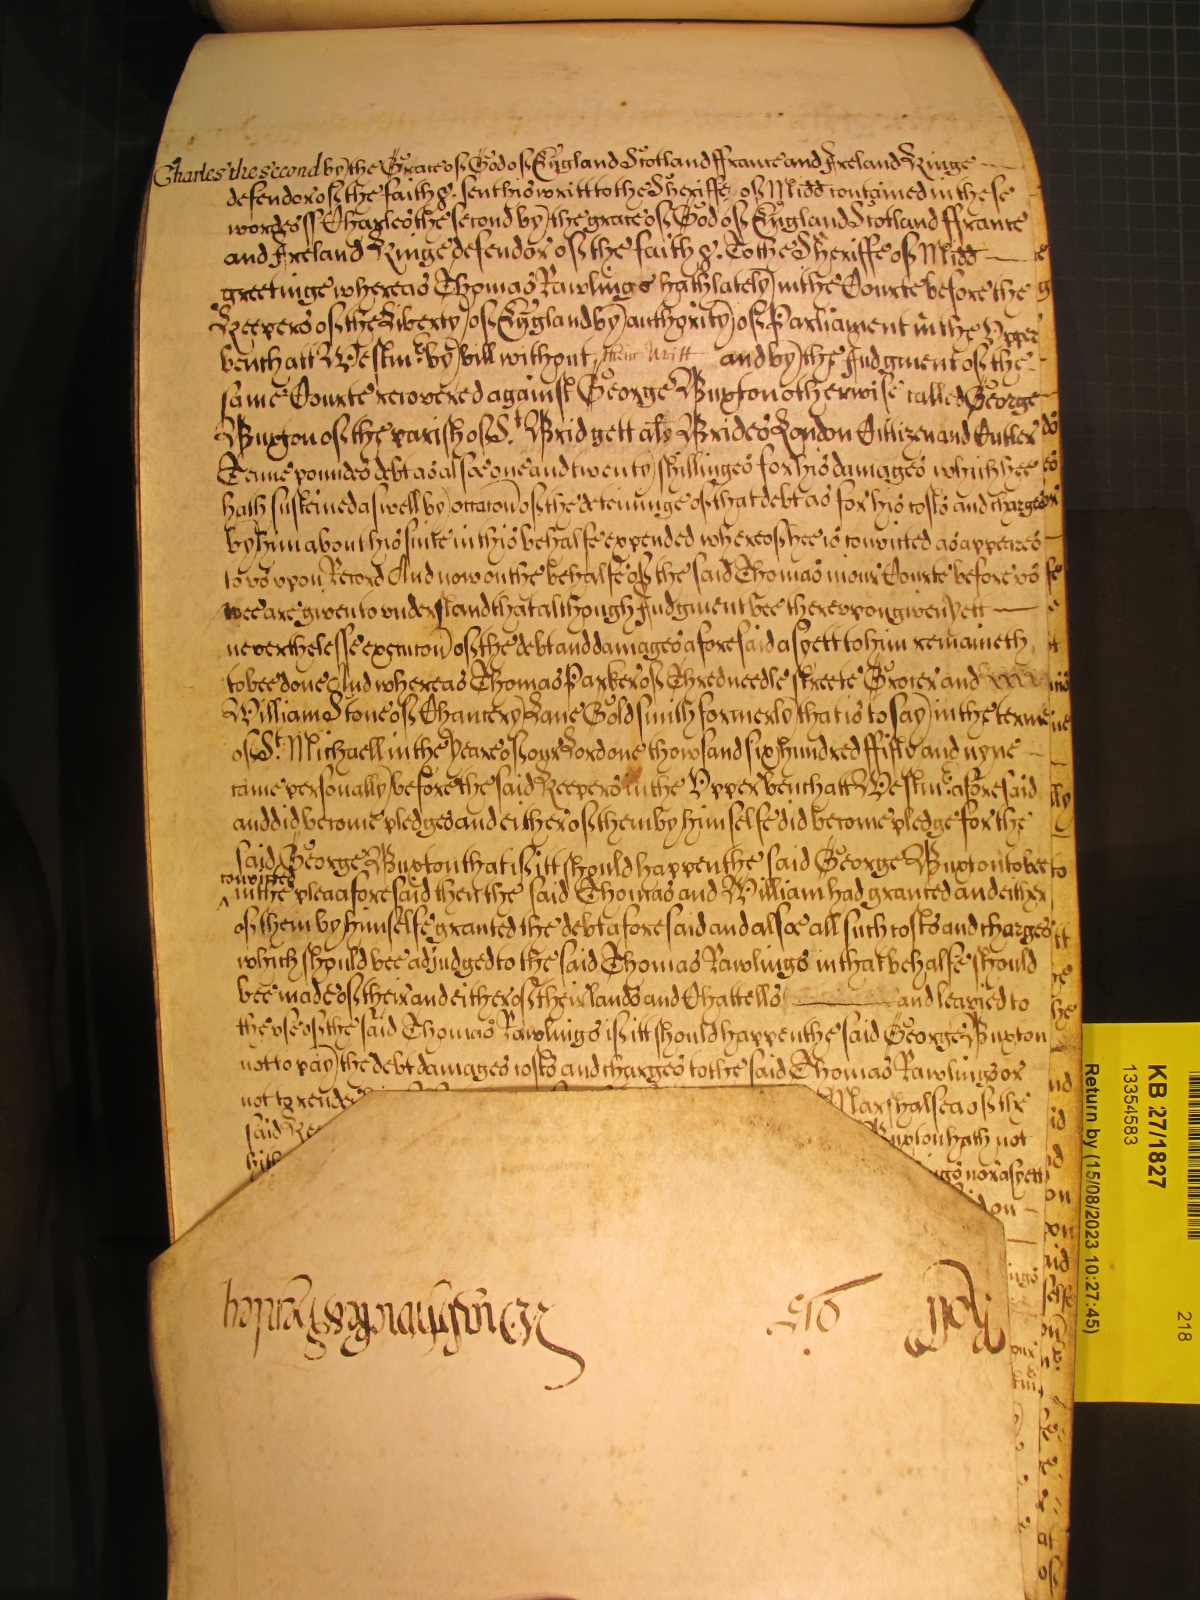 Charles the second by the Grace of God of England Scotland ffrance and Ireland Kinge
defendor of the faith &. sent his writt to the Sheriffe of Midd contained in these
wordes ss Charles the second by the grace of God of England Scotland ffrance
and Ireland Kinge defendor of the faith &. To the Sheriffe of Midd
greetinge whereas Thomas Rawlings hath lately in the Courte before the
Keepers of the Liberty of England by authority of Parliament in the Upper
bench att Westm: by bill without their Writt and by the Judgment of the
same Courte recovered against George Buxton otherwise called George
Buxton of the parish of St Bridgett als Brides London Cittizen and Cutler
Tenne poundes debt as alsoe one and twenty shillinges for his damages which hee
hath susteined aswell by occacon of the deteininge of that debt as for his costs and charges
by him about his suite in this behalfe expended whereof hee is convicted as appeares
to us upon Record And now on the behalfe of the said Thomas in our Courte before us
wee are given to understand that although Judgment bee thereupon given yett
neverthelesse execucon of the debt and damages aforesaid as yett to him remaineth
to bee done And whereas Thomas Parker of Thredneedle streete Grocer and
William Stone of Chancery Lane Goldsmith formerly that is to say in the terme
of St Michaell in the yeare of our Lord one thowsand six hundred fiftie and nyne
came personally before the said Keepers in the Upper bench att Westm: aforesaid
and did become pledges and either of them by himselfe did become pledge for the
said George Buxton that if itt should happen the said George Buxton to bee
convicted
in the plea aforesaid then the said Thomas and William had granted and either
of them by himselfe granted the debt aforesaid and alsoe all such costs and charges
which should bee adjudged to the said Thomas Rawlings in that behalfe should
bee made of their and either of their lands and Chattells and leavied to
the use of the said Thomas Rawlings if itt should happen the said George Buxton
not to pay the debt damages costs and charges to the said Thomas Rawlings or
not to render Marshalsea of the
said Buxton hath not
nor as yett
KB 27/1827
13354583
Return by (15/08/2023 10:27:45)
218